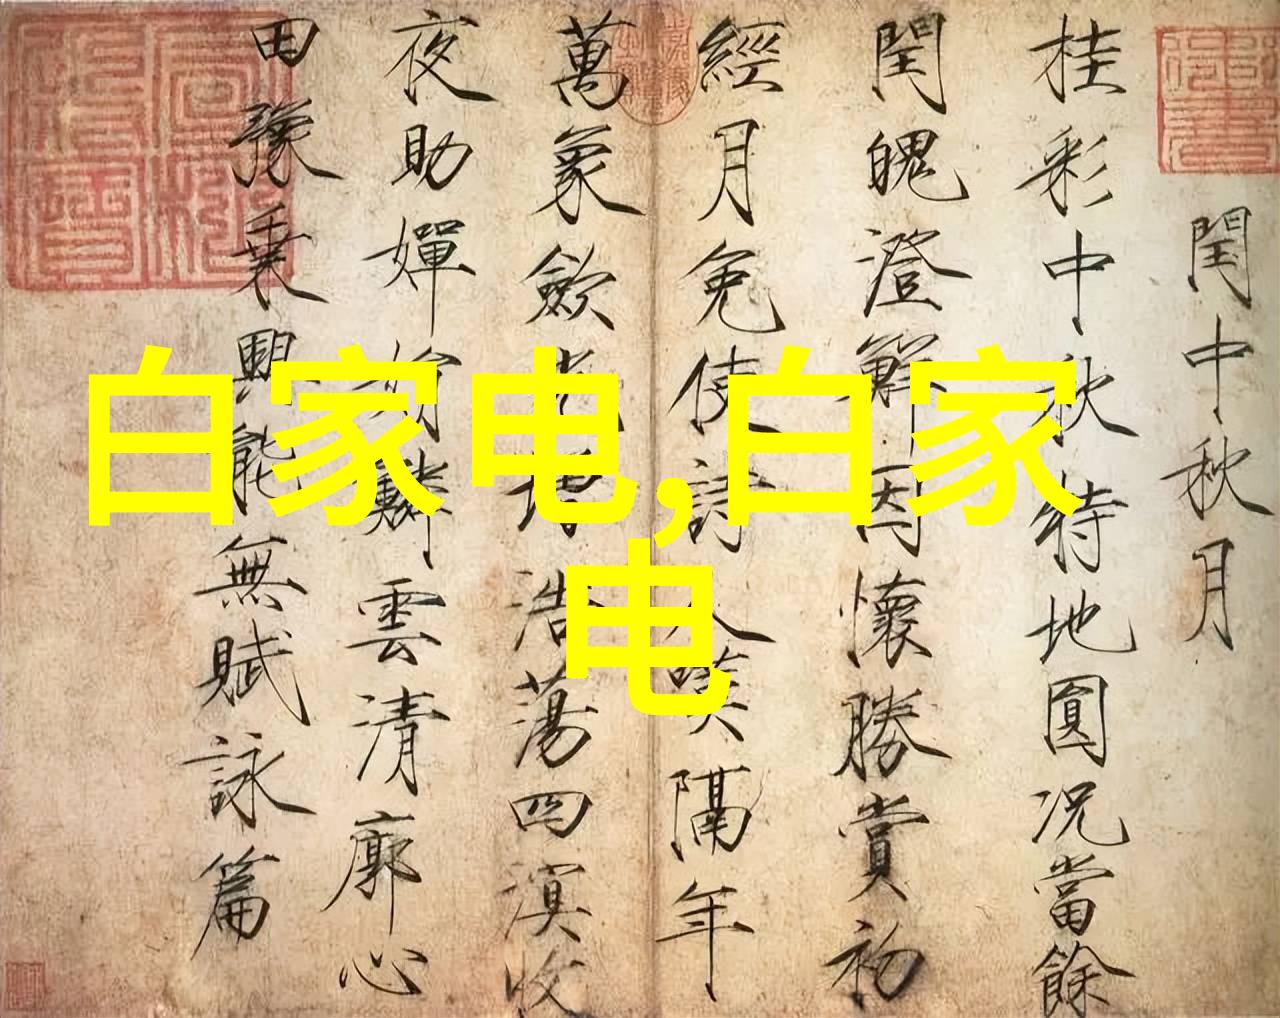 白家电,白家
电
閏中秋月
桂彩中秋特地圓况當餘
閏魄澄鮮因懷勝賞初
經月免使詩人嘆隔年
萬象歛光增浩蕩四溟收
夜助嬋娟鱗雲清廓心
田豫乗興能無賦詠篇